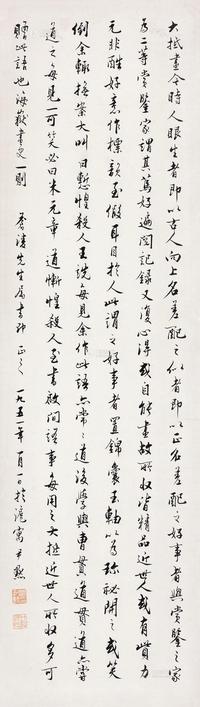 大抵畫今時人眼生者即以古人向上名差配之似者即以正名差配之好事者與賞鑒之家
為二等賞鑒家謂其篤好遍閱記錄又復心得或自能畫故所收皆精品近世人或有貲力
元非酷好意作標韻至假耳目於人此謂之好事者置錦囊玉軸以為珍秘開之或笑
倒余輒撫案大叫曰慚惶殺人王詵每見余作此語亦常常道後學與曹貫道貫道亦嘗
道之每見一可笑必曰米元章道慚惶殺人至書啟間語事每用之大抵近世人所收多可
贈此語也 海嶽畫史一則 先生屬書即正之 一九五一年一月一日於滬寓 尹默